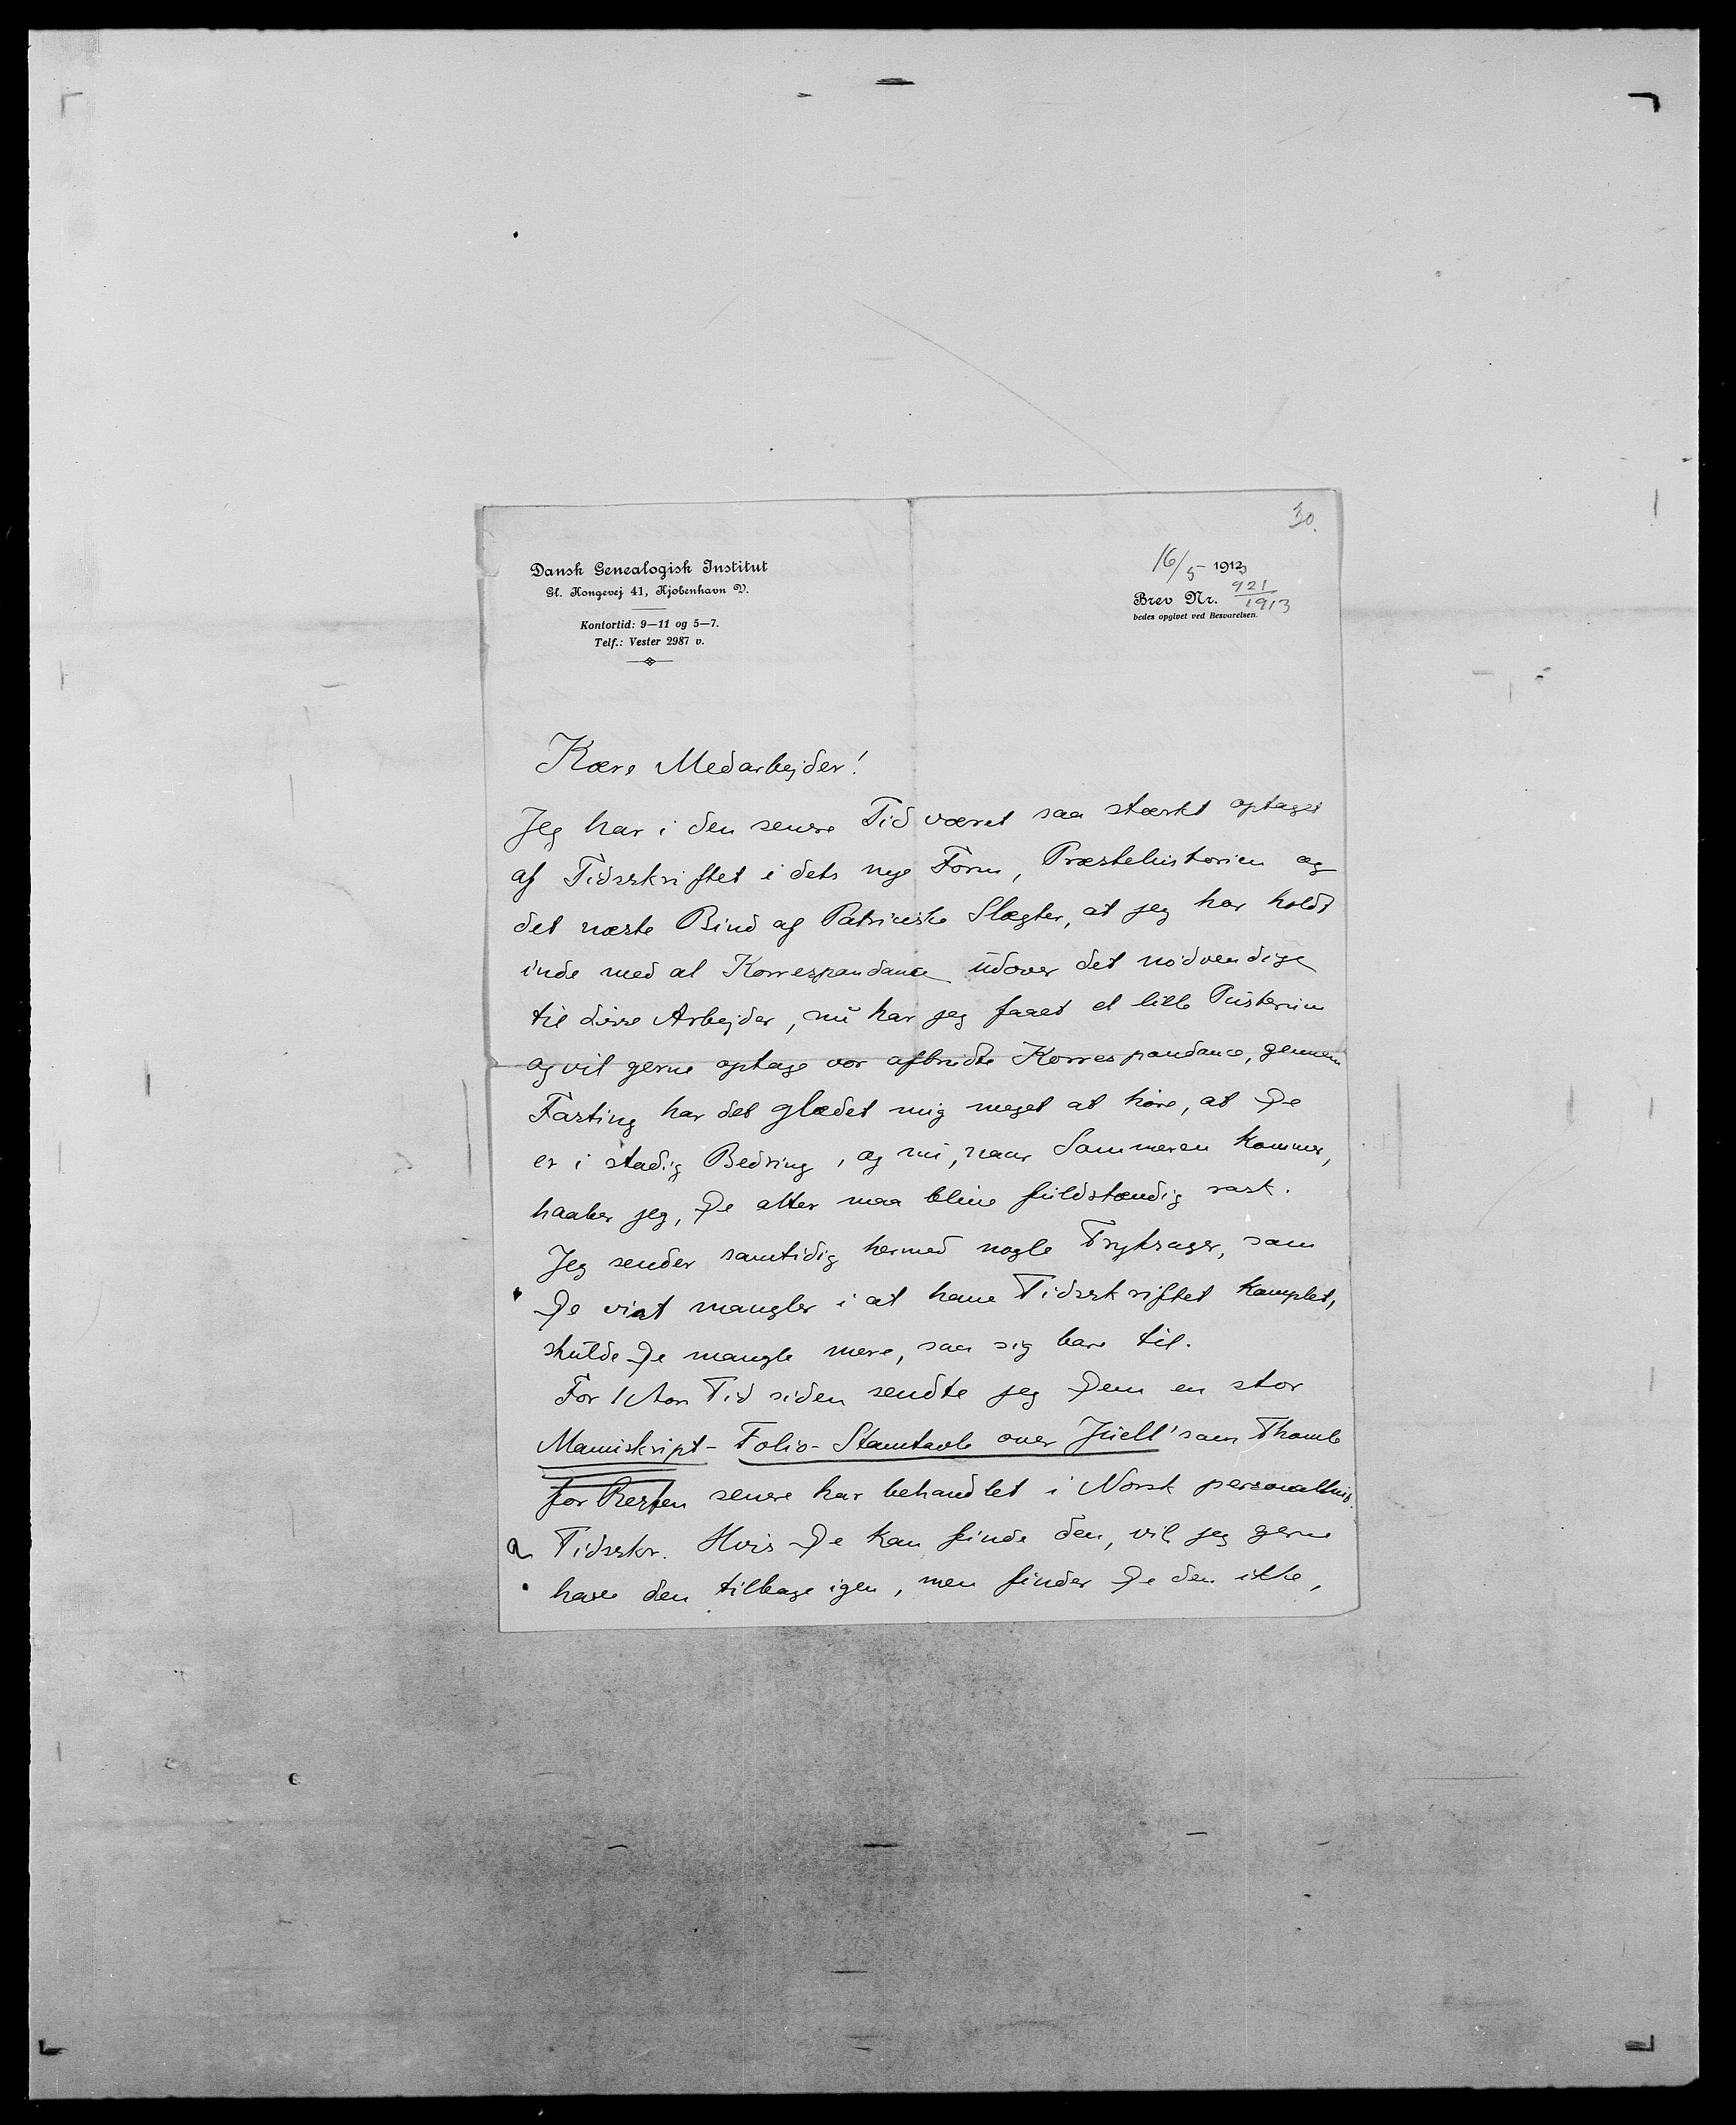 30.
Dansk Genealogisk Institut
Gl. Kongevej 41, Kjøbenhavn V.
Kontortid: 9—11 og 5—7.
Telf.: Vester 2987 v.
16/5 1913
Brev Nr. 921/1913
bedes opgivet ved Besvarelsen.
Kære Medarbejder!
Jeg har i den senere Tid været saa stærkt optaget
af Tidsskriftet i dets nye Form, Præstehistorien og
det næste Bind af Patriciske Slægter, at jeg har holdt
inde med al Korrespondance udover det nødvendige
til disse Arbejder, nu har jeg faaet et lille Pusterum
og vil gerne optage vor afbrudte Korrespondance, gennem
Fasting har det glædet mig meget at høre, at De
er i stadig Bedring, og nu, naar Sommeren kommer,
haaber jeg, De atter maa blive fuldstændig rask.
Jeg sender samtidig hermed nogle Tryksager, som
De vist mangler i at have Tidsskriftet komplet,
skulde De mangle mere, saa sig bare til.
For 1 Aars Tid siden sendte jeg Dem en stor
Manuskript-Folio-Stamtavle over Juell'som Thomle
for Resten senere har behandlet i Norsk personalhis.
Tidsskr. Hvis De kan finde den, vil jeg gerne
have den tilbage igen, men finder De den ikke,